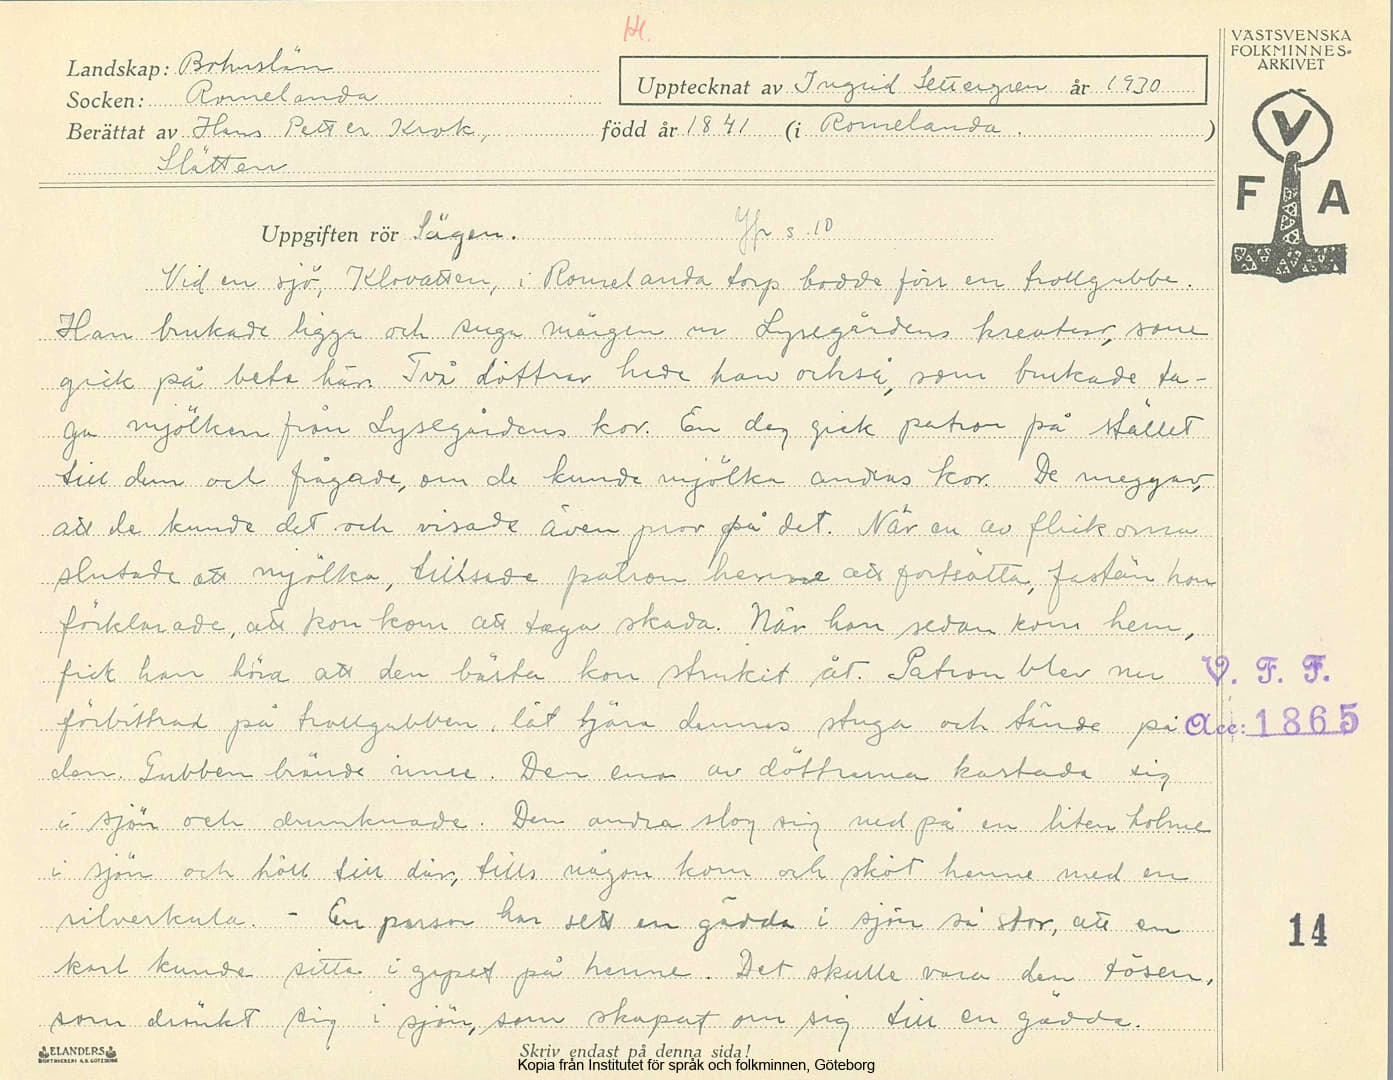 H.
VÄSTSVENSKA
FOLKMINNES-
ARKIVET
V
F A
Landskap: Bohuslän
Socken: Romelanda
Upptecknat av Ingrid Settergren år 1930
Berättat av Hans Petter Krok, född år 1841 (i Romelanda. )
Slätten
Uppgiften rör Sägen. Jfr s. 10
Vid en sjö, Klovatten, i Romelanda torp bodde förr en trollgubbe.
Han brukade ligga och suga märgen ur Lysegårdens kreatur, som
gick på bete här. Två döttrar hade han också, som brukade ta-
ga mjölken från Lysegårdens kor. En dag gick patron på stället
till dem och frågade, om de kunde mjölka andras kor. De
att de kunde det och visade även prov på det. När en av flickorna
slutade att mjölka, tillsade patron henne att fortsätta, fastän hon
förklarade, att kon kom att taga skada. När han sedan kom hem,
fick han höra att den bästa kon strukit åt. Patron blev nu
förbittrad på trollgubben, lät tjära dennes stuga och tände på
den. Gubben brände inne. Den ena av döttrarna kastade sig
i sjön och drunknade. Den andra slog sig ned på en liten holme
i sjön och höll till där, tills någon kom och sköt henne med en
silverkula. - En person har sett en gädda i sjön så stor, att en
karl kunde sitta i gapet på henne. Det skulle vara den tösen,
som dränkt sig i sjön, som skapat om sig till en gädda.
V. F. F.
Acc: 1865
14
ELANDERS
Skriv endast på denna sida!
Kopia från Institutet för språk och folkminnen, Göteborg